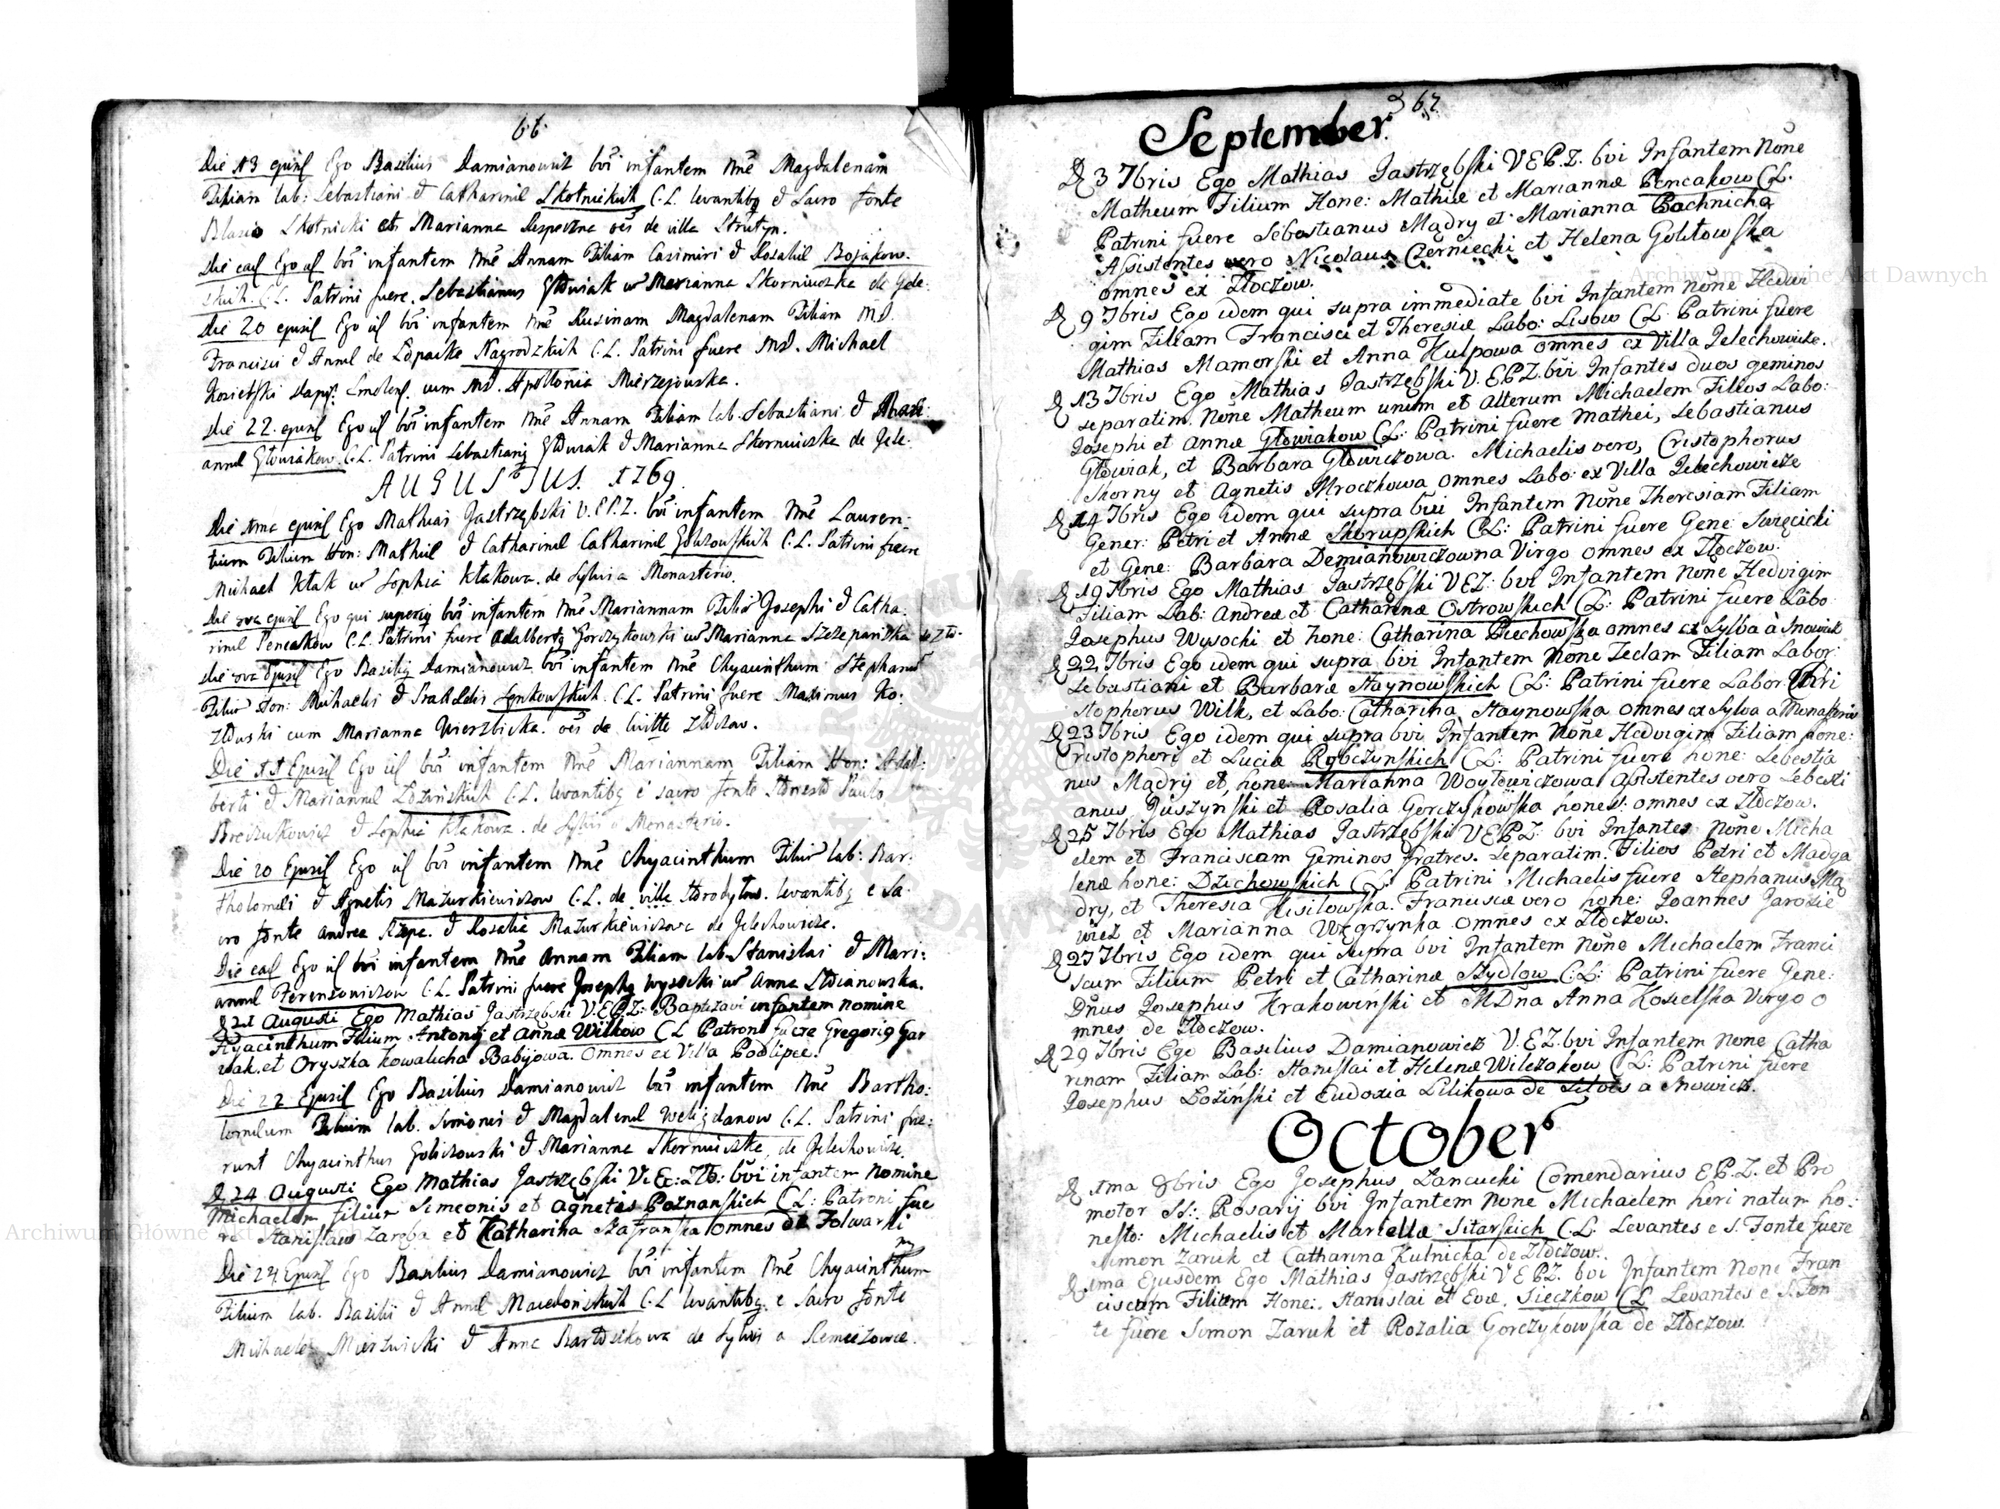 66.
Die 13 ejusd Ego Basilius Damianowicz bûi infantem Nnê Magdalenam
Filiam lab: Sebastiani & Catharinæ Skotnickich C.L. levantibq & sacro fonte
Blasio Skotnicki et Marianna oês de villa Strutyn.
Die ead Ego id bûi infantem Nnê Annam Filiam Casimiri & Rosaliæ Bojakow-
skich. C.L. Patrini fuere. Sebastianus Głowiak Marianna Skorniuszka de Jele-
Die 20 ejusd Ego id bûi infantem Nnê Magdalenam Filiam MD.
Francisci & Annæ de Łopackie Nagrodzkich C.L. Patrini fuere MD. Michael
Kosielski cum MD. Apollonia Mierzejewska.
Die 22. ejusd Ego id bûi infantem Nnê Annam Filiam lab. Sebastiani &
annæ Głowiakow. C.L. Patrini Sebastianq Głowiak & Marianna Skorniuszka de Jele-
AUGUSTUS. 1769.
Die 1ma ejusd Ego Mathias Jastrzębski V.EP.Z. bûi infantem Nnê Lauren-
tium Filium Hon: Mathiæ & Catharinæ Catharinæ Goliszowskich C.L. Patrini fuere
Michael Kłak Sophia Kłakowa. de Sylvia Monasterio.
Die ejusd Ego qui superiq bûi infantem Nnê Mariannam Josephi & Catha-
rinæ Pencakow C.L. Patrini fuere Adalbertq Gorczykowski Marianna Szczepańska
Die ejusd Ego Basiliq Damianowicz bûi infantem Nnê Chyacinthum Stephanum
Hon: Michaelis & Lenkowskich C.L. Patrini fuere Maximus Ko-
złowski cum Marianna Wierzbicka. oês de Złoczow.
Die 11 Ejusd Ego id bûi infantem Nnê Mariannam Filiam Hon: Adal-
berti & Mariannæ Łozinskich C.L. levantibq e sacro fonte Paulo
& Sophia Kłakowa. de Sylvis a Monasterio.
Die 20 Ejusd Ego id bûi infantem Nnê Chyacinthum lab: Bar-
tholomei & Agnetis Mazurkiewiczow C.L. de ville levantibq e Sa-
cro fonte Andrea Rzepa. & Rosalia Mazurkiewiczowa de Jelechowicze.
Die ead Ego id bûi infantem Nnê Annam Filiam lab. Stanislai & Mari-
annæ Ferensowiczow C.L. Patrini fuere Josephq Wysocki Anna
D 21 Augusti Ego Mathias Jastrzębski V.EPZ: Baptizavi infantem nomine
Hyacinthum Filium Antonij et Annæ Wilkow CL Patroni fuere Gregoriq Gar
wak. et Oryszka Kowalicha Babijowa. Omnes ex Villa Podlipce.
Die 22 Ejusd Ego Basilius Damianowicz bûi infantem Nnê Bartho-
lomæum Filium lab. Simonis & Magdalenæ Weligdanow C.L. Patrini fue-
runt Chyacinthus Goliszowski & Marianna Skorniuszka. de Jelechowicze.
D 24 Augusti Ego Mathias Jastrzębski V. bûi infantem nomine
Michaelem filium Simeonis et Agnetis Poznanskich CL: Patroni fue
re Stanislaus Zaręba et Catharina Szafranska omnes ex Folwarki
Die 24 Ejusd Ego Basilius Damianowicz bûi infantem Nnê Chyacinthum
Filium lab. Basilii & Annæ Macedonskich C.L. levantibq. e Sacro fonte
Michaele & Anna de Sylvis a
67
September.
D 3 7bris Ego Mathias Jastrzębski V.EP.Z. bvi Infantem None
Matheum Filium Hone: Mathiæ et Mariannæ Pencakow CL.
Patrini fuere Sebastianus Mądry et Marianna Bachnicha
Assistentes vero Nicolaus Czerniecki et Helena Golitowska
omnes ex Złoczow.
D 9 7bris Ego idem qui supra immediate bvi Infantem None Hedvi
gim Filiam Francisci et Theresiæ Labo: Lisow CL: Patrini fuere
Mathias Mamorski et Anna Kulpowa omnes ex Villa Jelechowicze.
D 13 7bris Ego Mathias Jastrzębski V.EPZ. bvi Infantes duos geminos
separatim None Matheum unum et alterum Michaelem Filios Labo:
Josephi et Annæ Głowiakow CL: Patrini fuere Mathei, Sebastianus
Głowiak, et Barbara Głowiczowa. Michaelis vero, Cristophorus
Skorny et Agnetis Mroczkowa omnes Labo: ex Villa Jelechowicze
D 14 7bris Ego idem qui supra bvi Infantem None Theresiam Filiam
Gener: Petri et Annæ Skorupskich CL: Patrini fuere Gene: Swięcicki
et Gene: Barbara Demianowiczowna Virgo omnes ex Złoczow.
D 19 7bris Ego Mathias Jastrzębski VEZ: bvi Infantem None Hedvigim
Filiam Lab: Andreæ et Catharinæ Ostrowskich CL: Patrini fuere Labo:
Josephus Wysocki et hone: Catharina Piechowska omnes ex Sylva à Snowicz
D 22 7bris Ego idem qui supra bvi Infantem None Teclam Filiam Labor:
Sebastiani et Barbaræ Haynowskich CL: Patrini fuere Labor: Chri
stophorus Wilk, et Labo: Catharina Haynowska omnes ex Sylva a Monasterio
D 23 7bris Ego idem qui supra bvi Infantem None Hedvigim Filiam hone:
Cristophori et Luciæ Rybczynskich CL: Patrini fuere hone: Sebestia
nus Mądry et, hone: Marianna Woytowiczowa Assistentes vero Sebesti
anus Duszynski et Rosalia Gorczykowska hones: omnes ex Złoczow.
D 25 7bris Ego Mathias Jastrzębski VEPZ: bvi Infantes None Micha
elem et Franciscam Geminos fratres. Separatim. Filios Petri et Madga
lenæ hone: Dzichowskich CL: Patrini Michaelis fuere Stephanus Mą
dry, et Theresia Kisilowska. Franciscæ vero hone: Joannes Jarosie
wicz et Marianna Węgrzynka omnes ex Złoczow.
D 27 7bris Ego idem qui supra bvi Infantem None Michaelem Franci
scum Filium Petri et Catharinæ Szydłow CL: Patrini fuere Gene:
Dnus Josephus Krakowinski et MDna Anna Kosielska Virgo o
mnes de Złoczow.
D 29 7bris Ego Basilius Damianowicz V.EZ. bvi Infantem None Catha
rinam Filiam Lab: Stanislai et Helenæ Wilczakow CL: Patrini fuere
Josephus Łoziński et Eudoxia Lilikowa de Silvis a Snowicz.
October
D 1ma 8bris Ego Josephus Lancucki Comendarius EP.Z. et Pro
motor SS: Rosarij bvi Infantem None Michaelem heri natum ho:
nesto: Michaelis et Mariellæ Sitarskich CL: Levantes e S. Fonte fuere
Simon Zaruk et Catharina Kutnicka de Złoczow.
D 1ma Ejusdem Ego Mathias Jastrzębski VEPZ. bvi Infantem None Fran
ciscam Filiam Hone: Stanislai et Evæ. Sieczkow CL. Levantes e S. Fon
te fuere Simon Zaruk et Rozalia Gorczykowska de Złoczow.
Archiwum Główne Akt Dawnych
Archiwum Główne Akt Dawnych